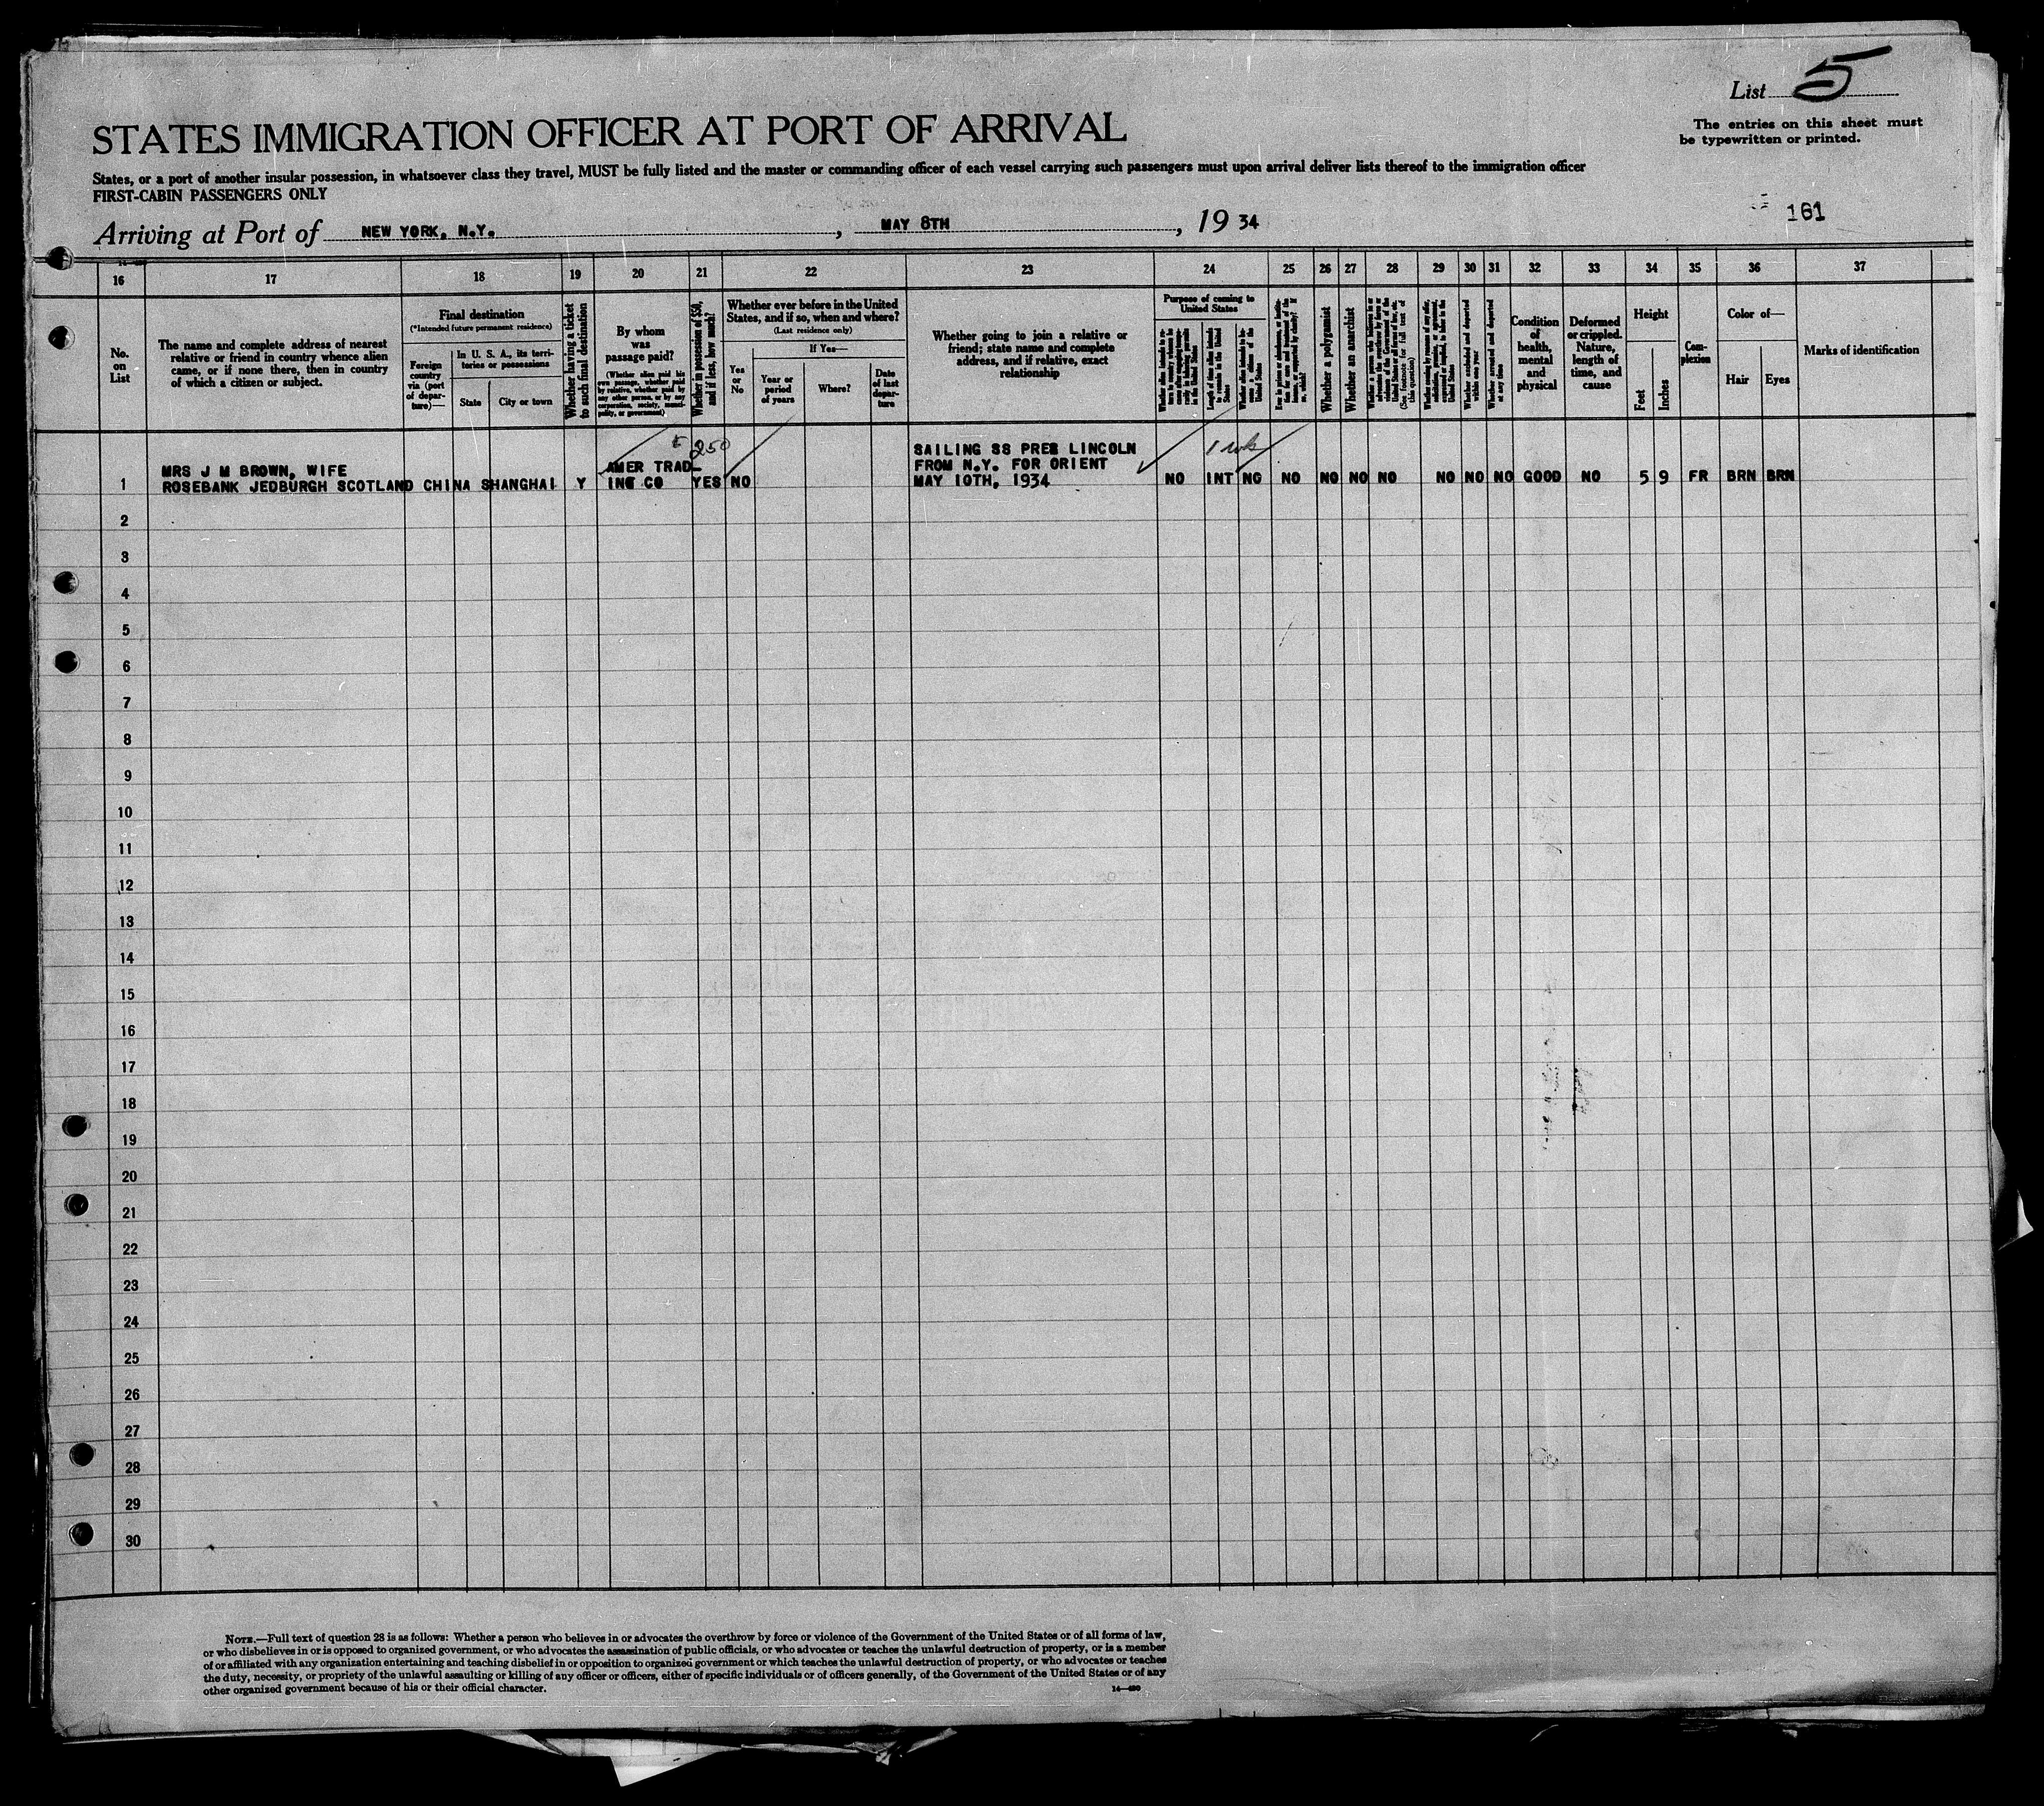 List 5
The entries on this sheet must
be typewritten or printed.
STATES IMMIGRATION OFFICER AT PORT OF ARRIVAL
States, or a port of another insular possession, in whatsoever class they travel, MUST be fully listed and the master or commanding officer of each vessel carrying such passengers must upon arrival deliver lists thereof to the immigration officer
FIRST-CABIN PASSENGERS ONLY
161
Arriving at Port of NEW YORK, N.Y. , MAY 8TH , 19 34
16 17 18 19 20 21 22 23 24 25 26 27 28 29 30 31 32 33 34 35 36 37
No.
on
List
The name and complete address of nearest
relative or friend in country whence alien
came, or if none there, then in country
of which a citizen or subject.
Final destination
(*Intended future permanent residence)
Foreign
country
via (port
of depar-
ture)—
In U. S. A., its terri-
tories or possessions
State
City or town
Whether having a ticket
to such final destination
By whom
was
passage paid?
(Whether alien paid his
own passage, whether paid
by relative, whether paid by
any other person, or by any
corporation, society, munici-
pality, or government)
Whether in possession of $50,
and if less, how much?
Whether ever before in the United
States, and if so, when and where?
(Last residence only)
Yes
or
No
If Yes—
Year or
period
of years
Where?
Date
of last
depar-
ture
Whether going to join a relative or
friend; state name and complete
address, and if relative, exact
relationship
Purpose of coming to
United States
Length of time alien intends
to remain in the United
States
Whether alien intends to be-
come a citizen of the
United States
Whether a polygamist
Whether an anarchist
(See footnote for full text of
this question)
Whether excluded and deported
within one year
Whether arrested and deported
at any time
Condition
of
health,
mental
and
physical
Deformed
or crippled.
Nature,
length of
time, and
cause
Height
Feet
Inches
Com-
plexion
Color of—
Hair
Eyes
Marks of identification
1
MRS J M BROWN, WIFE
ROSEBANK JEDBURGH SCOTLAND CHINA SHANGHAI Y
AMER TRAD-
ING CO
250
YES NO
SAILING SS PRES LINCOLN
FROM N.Y. FOR ORIENT
MAY 10TH, 1934
1 wk
NO INT NO NO NO NO NO NO NO NO GOOD NO 5 9 FR BRN BRN
2
3
4
5
6
7
8
9
10
11
12
13
14
15
16
17
18
19
20
21
22
23
24
25
26
27
28
29
30
NOTE.—Full text of question 28 is as follows: Whether a person who believes in or advocates the overthrow by force or violence of the Government of the United States or of all forms of law,
or who disbelieves in or is opposed to organized government, or who advocates the assassination of public officials, or who advocates or teaches the unlawful destruction of property, or is a member
of or affiliated with any organization entertaining and teaching disbelief in or opposition to organized government or which teaches the unlawful destruction of property, or who advocates or teaches
the duty, necessity, or propriety of the unlawful assaulting or killing of any officer or officers, either of specific individuals or of officers generally, of the Government of the United States or of any
other organized government because of his or their official character.